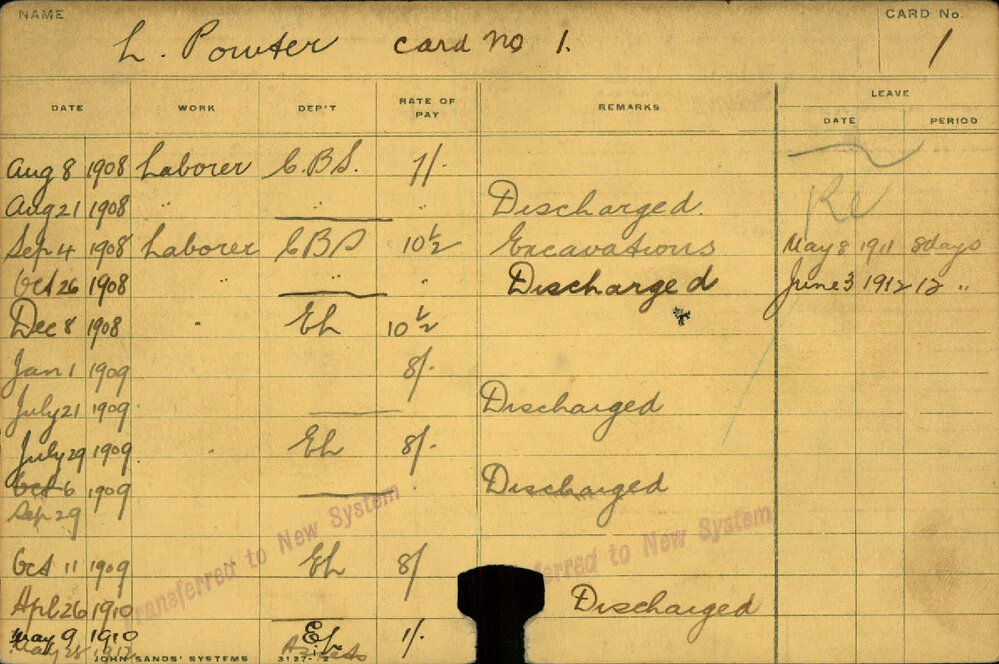 NAME
CARD No.
L. Powter card no 1.
1
DATE WORK DEP'T RATE OF PAY REMARKS LEAVE
DATE PERIOD
Aug 8 1908 Laborer C.B.S. 7/-
Aug 21 1908 " " " Discharged.
Re
Sep 4 1908 Laborer CBS 10½ Excavations May 8 1911 8 days
Oct 26 1908 " " Discharged June 3 1912 12 "
Dec 8 1908 " EL 10½
Jan 1 1909 8/-
July 21 1909 Discharged
July 29 1909 " EL 8/-
Oct 6 1909 Discharged
Sep 29
Transferred to New System
Oct 11 1909 EL 8/-
Apl 26 1910 Discharged
May 9 1910 EL 1/-
May 1912
JOHN SANDS' SYSTEMS 3127-